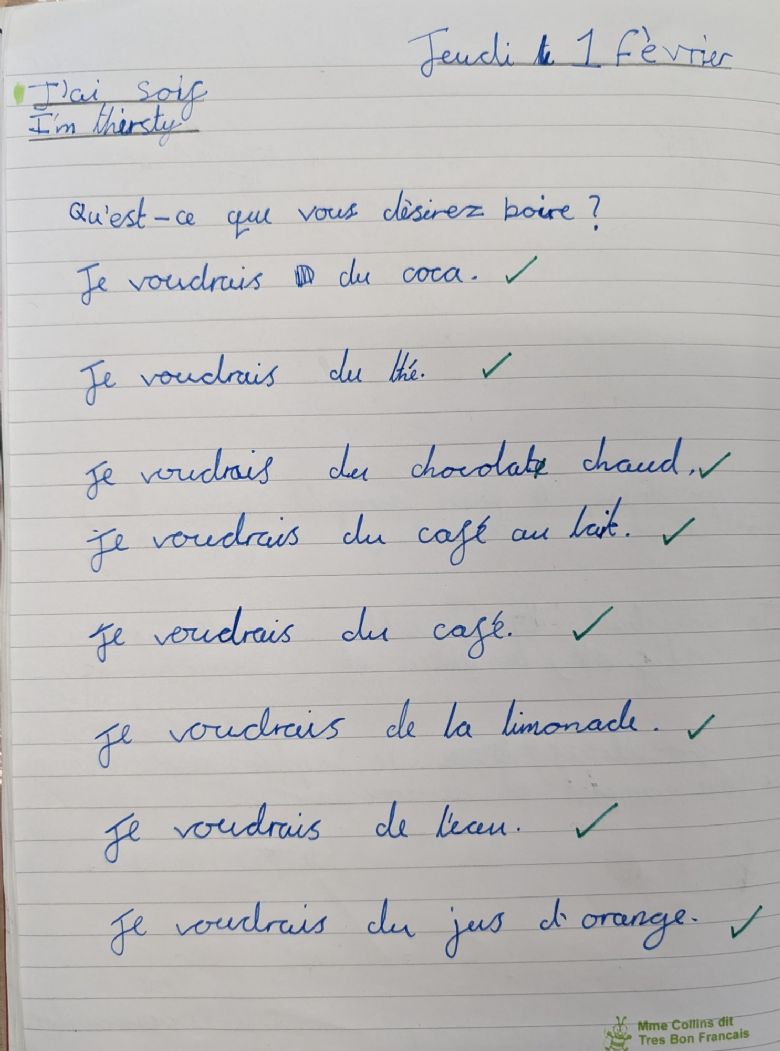 Jeudi le 1 Fèvrier
J'ai soif
I'm thirsty
Qu'est-ce que vous dèsirez boire?
Je voudrais du coca.
Je voudrais du thé.
Je voudrais du chocolat chaud.
Je voudrais du café au lait.
Je voudrais du café.
Je voudrais de la limonade.
Je voudrais de l'eau.
Je voudrais du jus d'orange.
Mme Collins dit
Tres Bon Francais